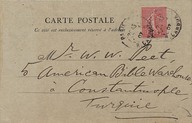 CARTE POSTALE
Ce côté est exclusivement réservé à l'adresse
Mr. W. W. Peet
American Bible Warehouse
à Constantinople
Turquie